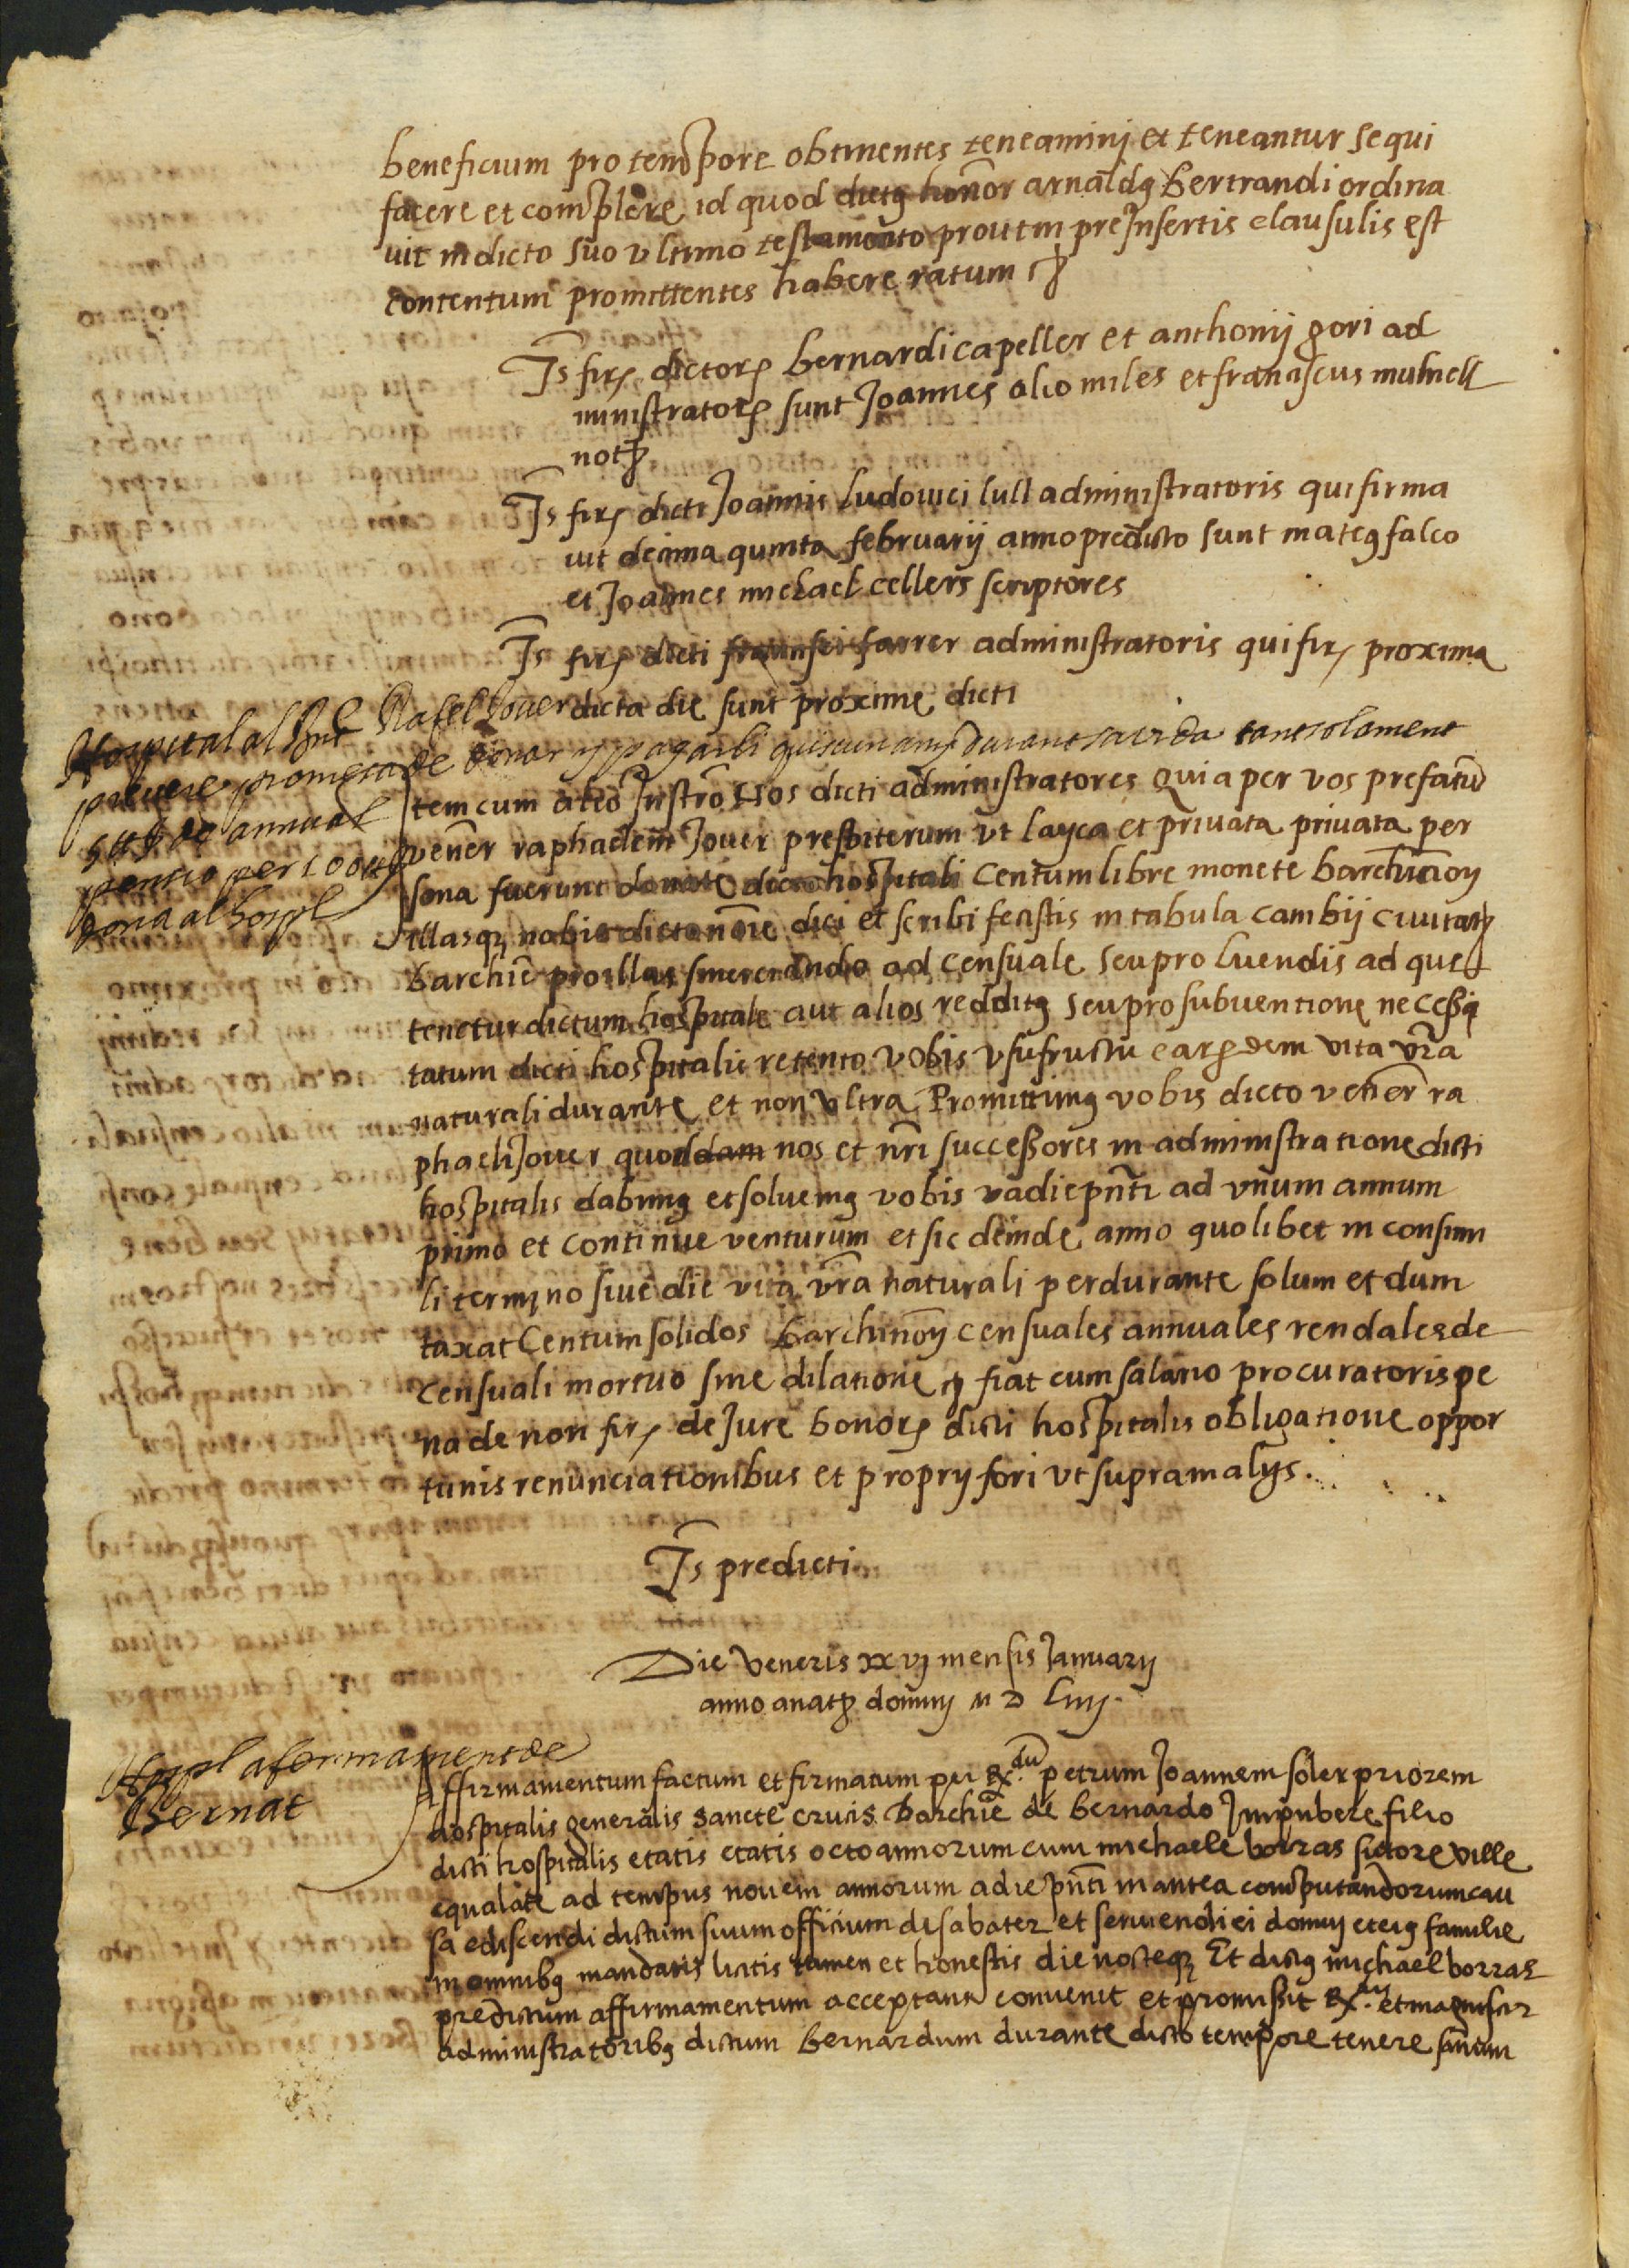 beneficium pro tempore obtinentes teneaminj et teneantur sequi
facere et complere id quod dictus honor arnaldus Bertrandi ordina
uit in dicto suo vltimo testamento prout in preInsertis clausulis est
contentum promittentes habere ratum
Ts firs dictors bernardi capeller et anthonij gori ad
ministrators sunt Joannes alio miles et franciscus mulnell
not
Ts firs dicti Joannis Ludouici lull administratoris qui firma
uit decima quinta februarij anno predicto sunt mateus falco
et Joannes michael cellers scriptores
Ts firs dicti farrer administratoris qui firs proxima
dicta die sunt proxime dicti
Hospital al Rnt Rafel Jouer
preuere promesa de donar y pagarli quiscun any durant sa vida tantsolament
de annual
pencio per 100
dona al hospl
Item cum alio Instro Nos dicti administratores Quia per vos prefatu
vener raphaelem Jouer presbiterum vt layca et priuata priuata per
sona fuerunt donate dicto hospitali Centum libre monete barchinon
illasq nobis dicto noie dici et scribi fecistis in tabula cambij ciuitatis
barchie pro illas smercando ad censuale seu pro luendis ad que
tenetur dictum hospitale aut alios redditus seu pro subuentione necessi
tatum dicti hospitalis retento vobis vsufructu earsdem vita vra
naturali durante et non vltra Promittimus vobis dicto vener ra
phaeli Jouer quod nos et nri successores in administratione dicti
hospitalis dabimus et soluemus vobis pnti ad vnum annum
primo et continue venturum et sic deinde anno quolibet in consimi
li termino siue die vita vra naturali perdurante solum et dum
taxat Centum solidos barchinon censuales annuales rendales de
censuali mortuo sine dilatione fiat cum salario procuratoris pe
na de non firs de Jure bonors dicti hospitalis obligatione oppor
tunis renunciationibus et proprij fori vt supra in alijs.
Ts predicti
Die veneris xx vj mensis Januarij
anno a nat dominj M D Liiij.
Hospl afermament de
Bernat
Affirmamentum factum et firmatum per Rx.du petrum Joannem soler priorem
hospitalis generalis sancte crucis barchie de bernardo Impubere filio
dicti hospitalis etatis etatis octo annorum cum michaele borras sutore ville
equalate ad tempus nouem annorum a die pnti in antea computandorum cau
sa ediscendi dictum suum officium de sabater et seruiendi ei domuj et eius familie
in omnibus mandatis licitis tamen et honestis die nocteq Et dictus michael borras
predictum affirmamentum acceptans conuenit et promissit Rx. et magnificis
administratoribus dictum bernardum durante dicto tempore tenere sanum